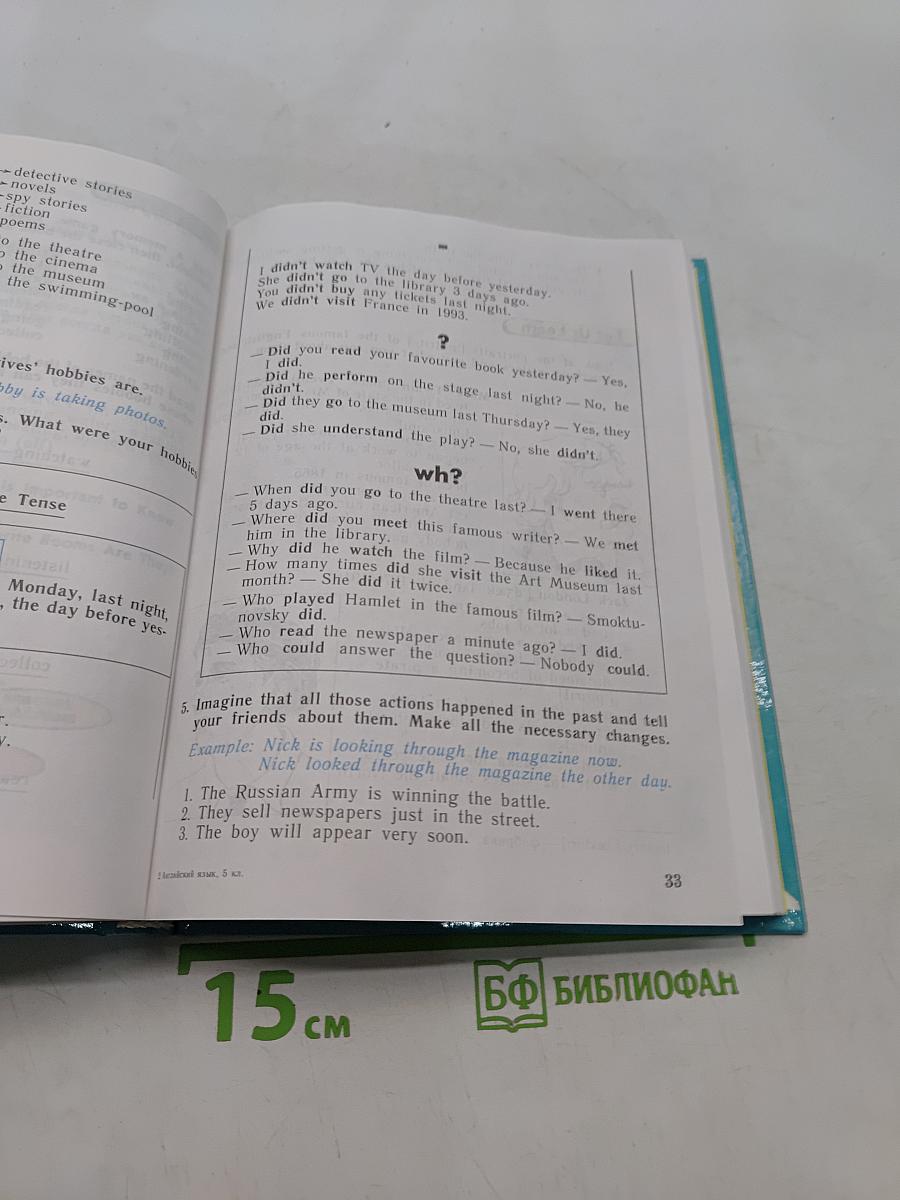 detective stories
novels
spy stories
fiction
poems
o the theatre
o the cinema
o the museum
the swimming-pool
ives' hobbies are.
bby is taking photos.
s. What were your hobbies
e Tense
Monday, last night,
, the day before yes-
r.
y.
I didn't watch TV the day before yesterday.
She didn't go to the library 3 days ago.
You didn't buy any tickets last night.
We didn't visit France in 1993.
?
— Did you read your favourite book yesterday? — Yes,
I did.
— Did he perform on the stage last night? — No, he
didn't.
— Did they go to the museum last Thursday? — Yes, they
did.
— Did she understand the play? — No, she didn't.
wh?
— When did you go to the theatre last? — I went there
5 days ago.
— Where did you meet this famous writer? — We met
him in the library.
— Why did he watch the film? — Because he liked it.
— How many times did she visit the Art Museum last
month? — She did it twice.
— Who played Hamlet in the famous film? — Smoktu-
novsky did.
— Who read the newspaper a minute ago? — I did.
— Who could answer the question? — Nobody could.
5. Imagine that all those actions happened in the past and tell
your friends about them. Make all the necessary changes.
Example: Nick is looking through the magazine now.
Nick looked through the magazine the other day.
1. The Russian Army is winning the battle.
2. They sell newspapers just in the street.
3. The boy will appear very soon.
2 Английский язык, 5 кл.
33
15 см
БФ БИБЛИОФАН